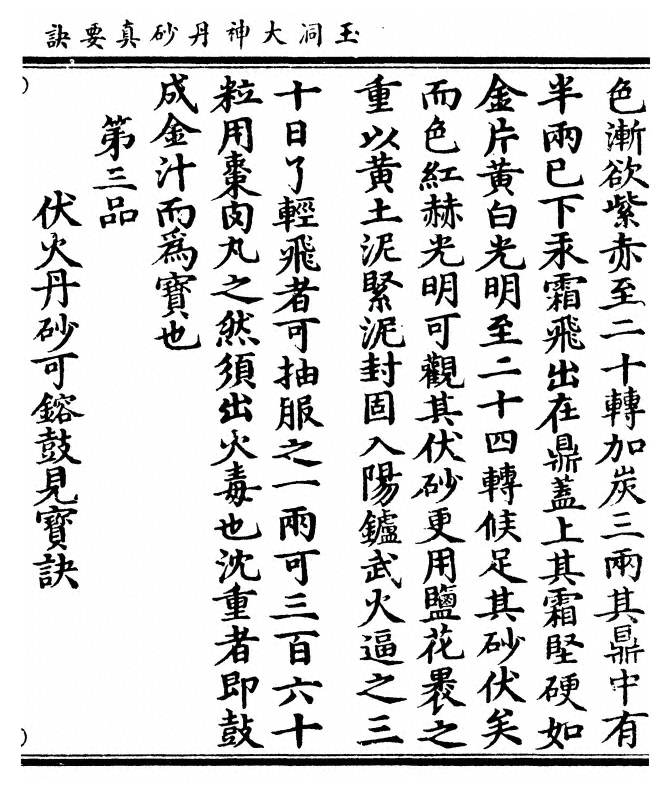 玉洞大神丹砂真要訣
色漸欲紫赤至二十轉加炭三兩其鼎中有
半兩已下汞霜飛出在鼎蓋上其霜堅硬如
金片黃白光明至二十四轉候足其砂伏矣
而色紅赫光明可觀其伏砂更用鹽花裹之
重以黃土泥緊泥封固入陽鑪武火逼之三
十日了輕飛者可抽服之一兩可三百六十
粒用棗肉丸之然須出火毒也沈重者即鼓
成金汁而爲寶也
第三品
伏火丹砂可鎔鼓見寶訣